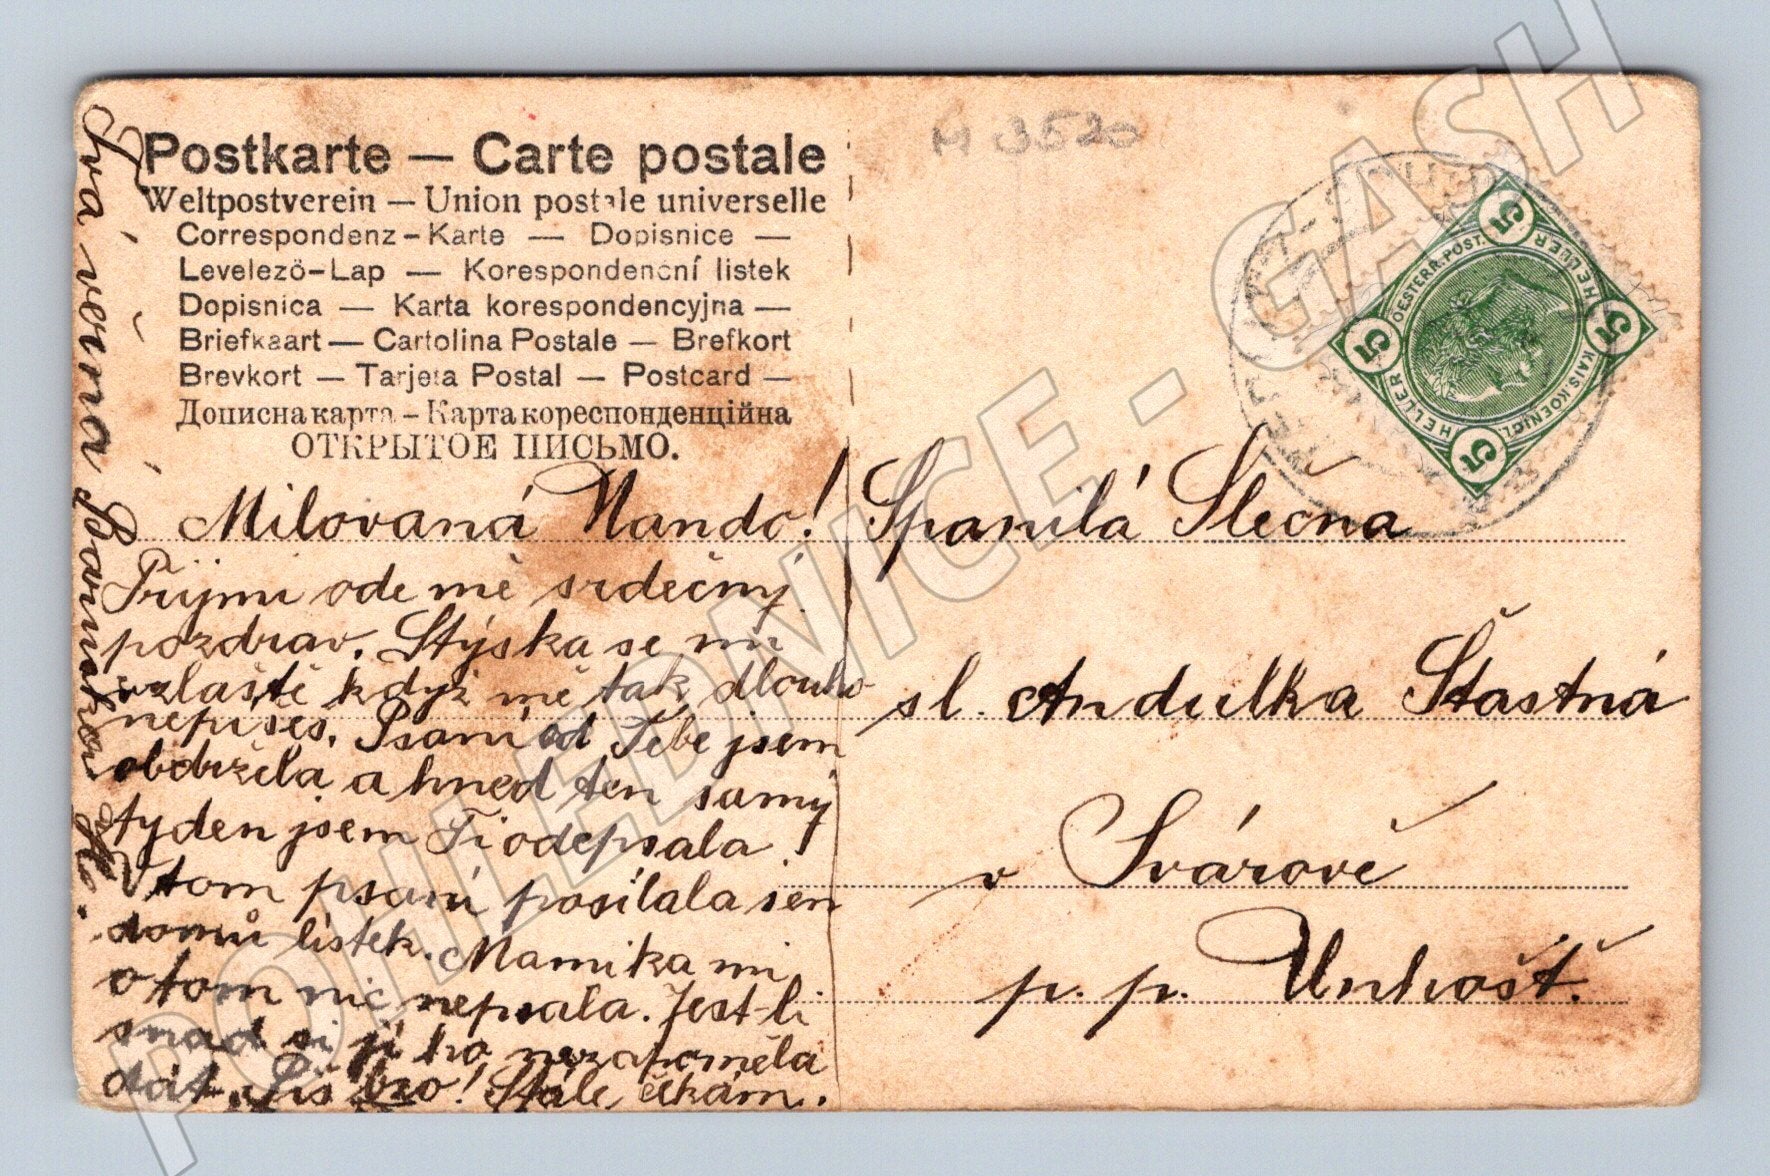 Postkarte — Carte postale
Weltpostverein — Union postale universelle
Correspondenz-Karte — Dopisnice —
Levelező-Lap — Korespondenční listek
Dopisnica — Karta korespondencyjna —
Briefkaart — Cartolina Postale — Brefkort
Brevkort — Tarjeta Postal — Postcard —
Дописна карта — Карта кореспонденційна
ОТКРЫТОЕ ПИСЬМО.
Milovaná Nando!
Přijmi ode mě srdečný
pozdrav. Stýska se mi
zvlaště když mě tak dlouho
nepíšeš. Psaní od Tebe jsem
obdržela a hned ten samý
tyden jsem Ti odepsala!
V tom psaní posílala jsem
domů lístek. Mamika mi
o tom nic nepsala. Jest-li
snad si jí ho nezapoměla
dát. Piš brzo! Stále čekám.
Tvá věrná
M 3520
Spanilá Slečna
sl. Andulka Štastná
v Svárově
p. p. Unhošť.
5 5 5 5
HELLER HELLER
OESTERR. POST.
KAIS. KOENIGL.
POHLEDNICE - GASH